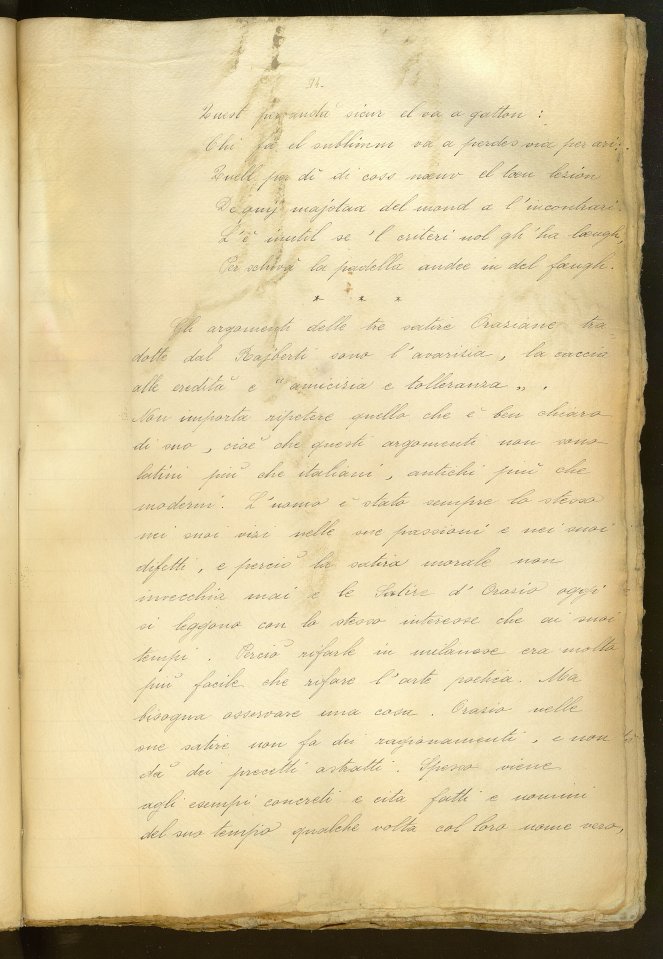 94.
Quest per andà sicur el va a gatton :
Chi fa el sublimm va a perdes via per ari;
Quell per dì di coss nœuv el tœu lezion
De ogni majstaa del mond a l'incontrari.
L'è inutil se 'l criteri nol gh'ha lœugh,
Per schivà la padella andee in del fœugh.
* * *
Gli argomenti delle tre satire Oraziane tra
dotte dal Rajberti sono l'avarizia, la caccia
alle eredità e "amicizia e tolleranza„.
Non importa ripetere quello che è ben chiaro
di suo, cioè che questi argomenti non sono
latini più che italiani, antichi più che
moderni. L'uomo è stato sempre lo stesso
nei suoi vizi nelle sue passioni e nei suoi
difetti, e perciò la satira morale non
invecchia mai e le Satire d'Orazio oggi
si leggono con lo stesso interesse che ai suoi
tempi. Perciò rifarle in milanese era molto
più facile che rifare l'arte poetica. Ma
bisogna osservare una cosa. Orazio nelle
sue satire non fa dei ragionamenti, e non
dà dei precetti astratti. Spesso viene
agli esempi concreti e cita fatti e uomini
del suo tempo qualche volta col loro nome vero,